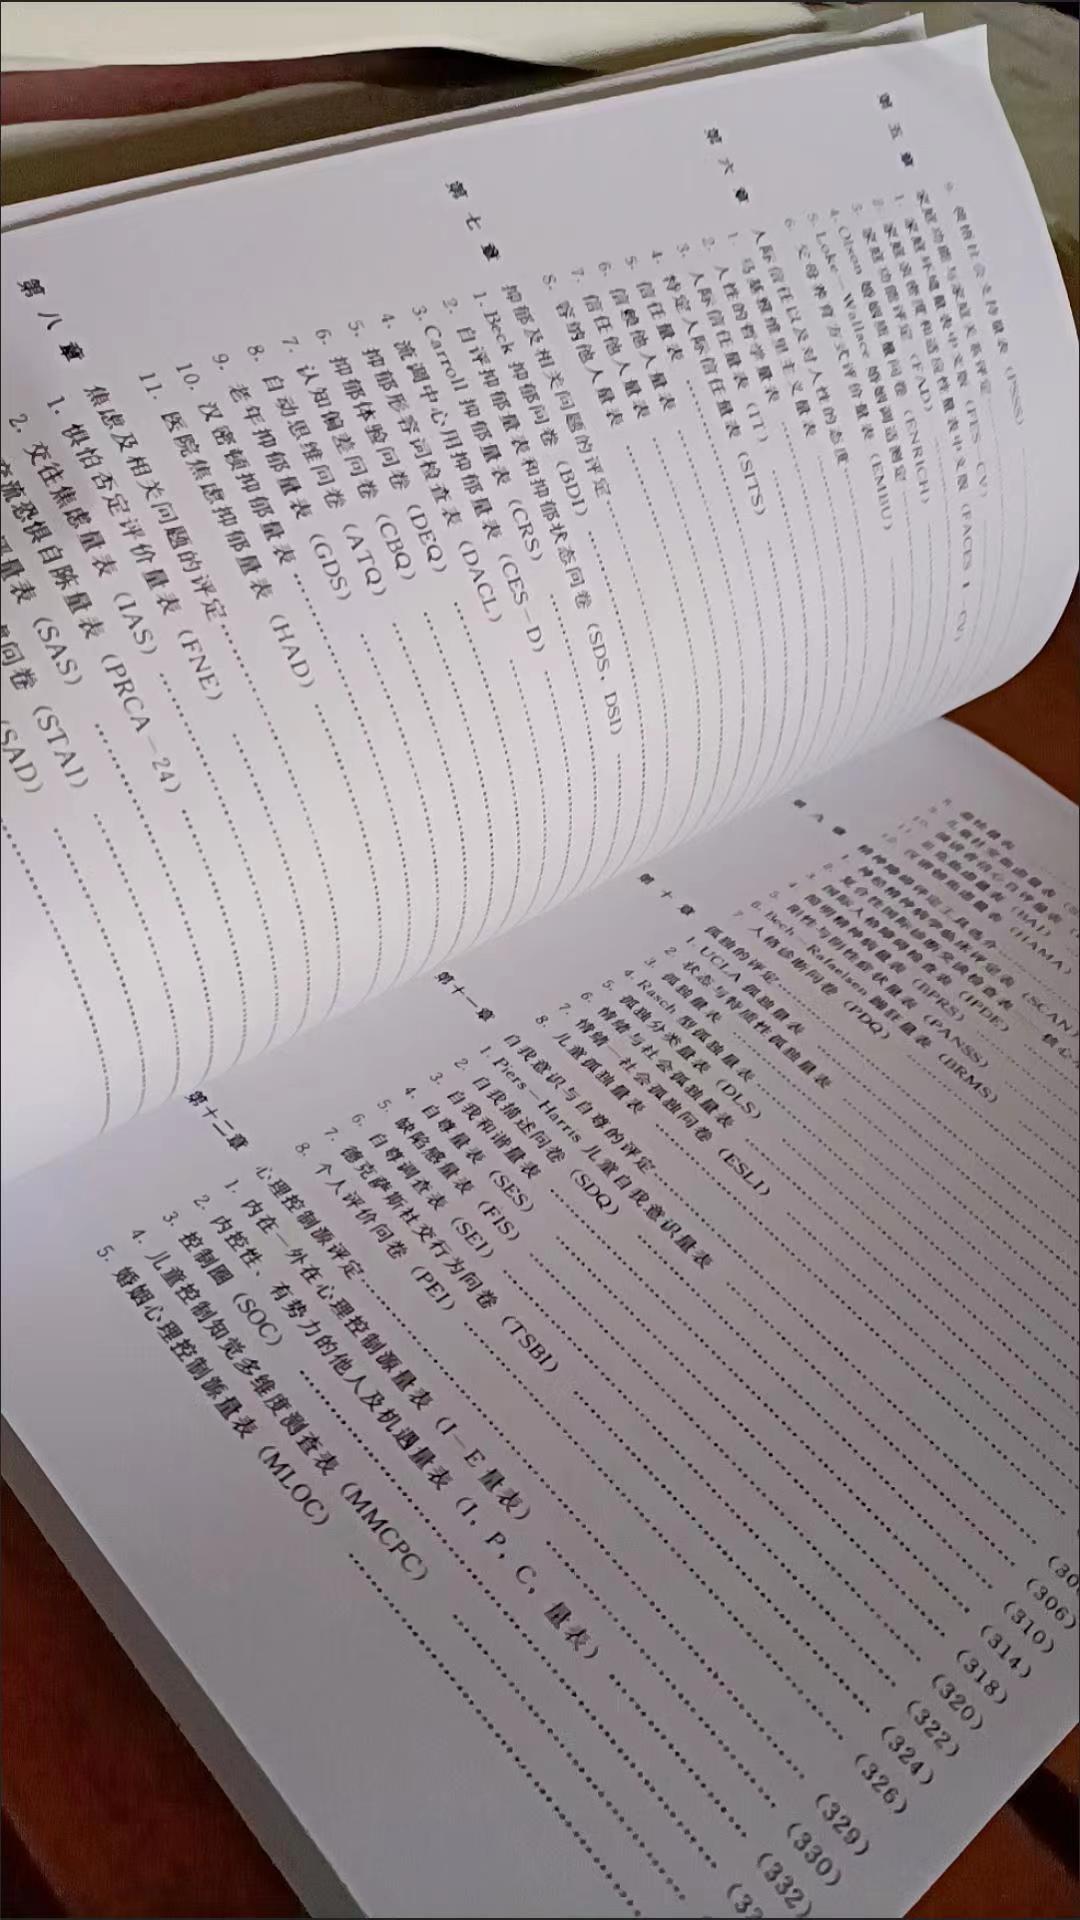 9. 领悟社会支持量表（PSSS）
第五章 家庭功能与家庭关系评定
1. 家庭环境量表中文版（FES-CV）
2. 家庭亲密度和适应性量表中文版（FACES Ⅱ-CV）
3. 家庭功能评定（FAD）
4. Olson 婚姻质量问卷（ENRICH）
5. Locke-Wallace 婚姻调适测定
6. 父母养育方式评价量表（EMBU）
第六章 人际信任以及对人性的态度
1. 马基雅维里主义量表
2. 人性的哲学量表
3. 人际信任量表（IT）
4. 特定人际信任量表（SITS）
5. 信任量表
6. 信赖他人量表
7. 信任他人量表
8. 容纳他人量表
第七章 抑郁及相关问题的评定
1. Beck 抑郁问卷（BDI）
2. 自评抑郁量表和抑郁状态问卷（SDS，DSI）
3. Carroll 抑郁量表（CRS）
4. 流调中心用抑郁量表（CES-D）
5. 抑郁形容词检查表（DACL）
6. 抑郁体验问卷（DEQ）
7. 认知偏差问卷（CBQ）
8. 自动思维问卷（ATQ）
9. 老年抑郁量表（GDS）
10. 汉密顿抑郁量表
11. 医院焦虑抑郁量表（HAD）
第八章 焦虑及相关问题的评定
1. 惧怕否定评价量表（FNE）
2. 交往焦虑量表（IAS）
交流恐惧自陈量表（PRCA-24）
量表（SAS）
问卷（STAI）
（SAD）
9. 儿童社交焦虑量表
11. 贝克焦虑量表（BAI）
12. 汉密顿焦虑量表（HAMA）
第九章 精神障碍评定工具选介
1. 神经精神病学临床评定表（SCAN）
2. 复合性国际诊断交谈检查表
3. 国际人格障碍检查表（IPDE）
4. 简明精神病量表（BPRS）
5. 阳性与阴性症状量表（PANSS）
6. Bech-Rafaelsen 躁狂量表（BRMS）
7. 人格诊断问卷（PDQ）
第十章 孤独的评定
1. UCLA 孤独量表
2. 状态与特质性孤独量表
3. 孤独量表
4. Rasch 型孤独量表
5. 孤独分类量表（DLS）
6. 情绪与社会孤独量表
7. 情绪—社会孤独问卷（ESLI）
8. 儿童孤独量表
第十一章 自我意识与自尊的评定
1. Piers-Harris 儿童自我意识量表 （306）
2. 自我描述问卷（SDQ） （310）
3. 自我和谐量表 （314）
4. 自尊量表（SES） （318）
5. 缺陷感量表（FIS） （320）
6. 自尊调查表（SEI） （322）
7. 德克萨斯社交行为问卷（TSBI） （324）
8. 个人评价问卷（PEI） （326）
第十二章 心理控制源评定 （329）
1. 内在—外在心理控制源量表（I-E 量表） （330）
2. 内控性、有势力的他人及机遇量表（I，P，C，量表） （332）
3. 控制圈（SOC）
4. 儿童控制知觉多维度测查表（MMCPC）
5. 婚姻心理控制源量表（MLOC）